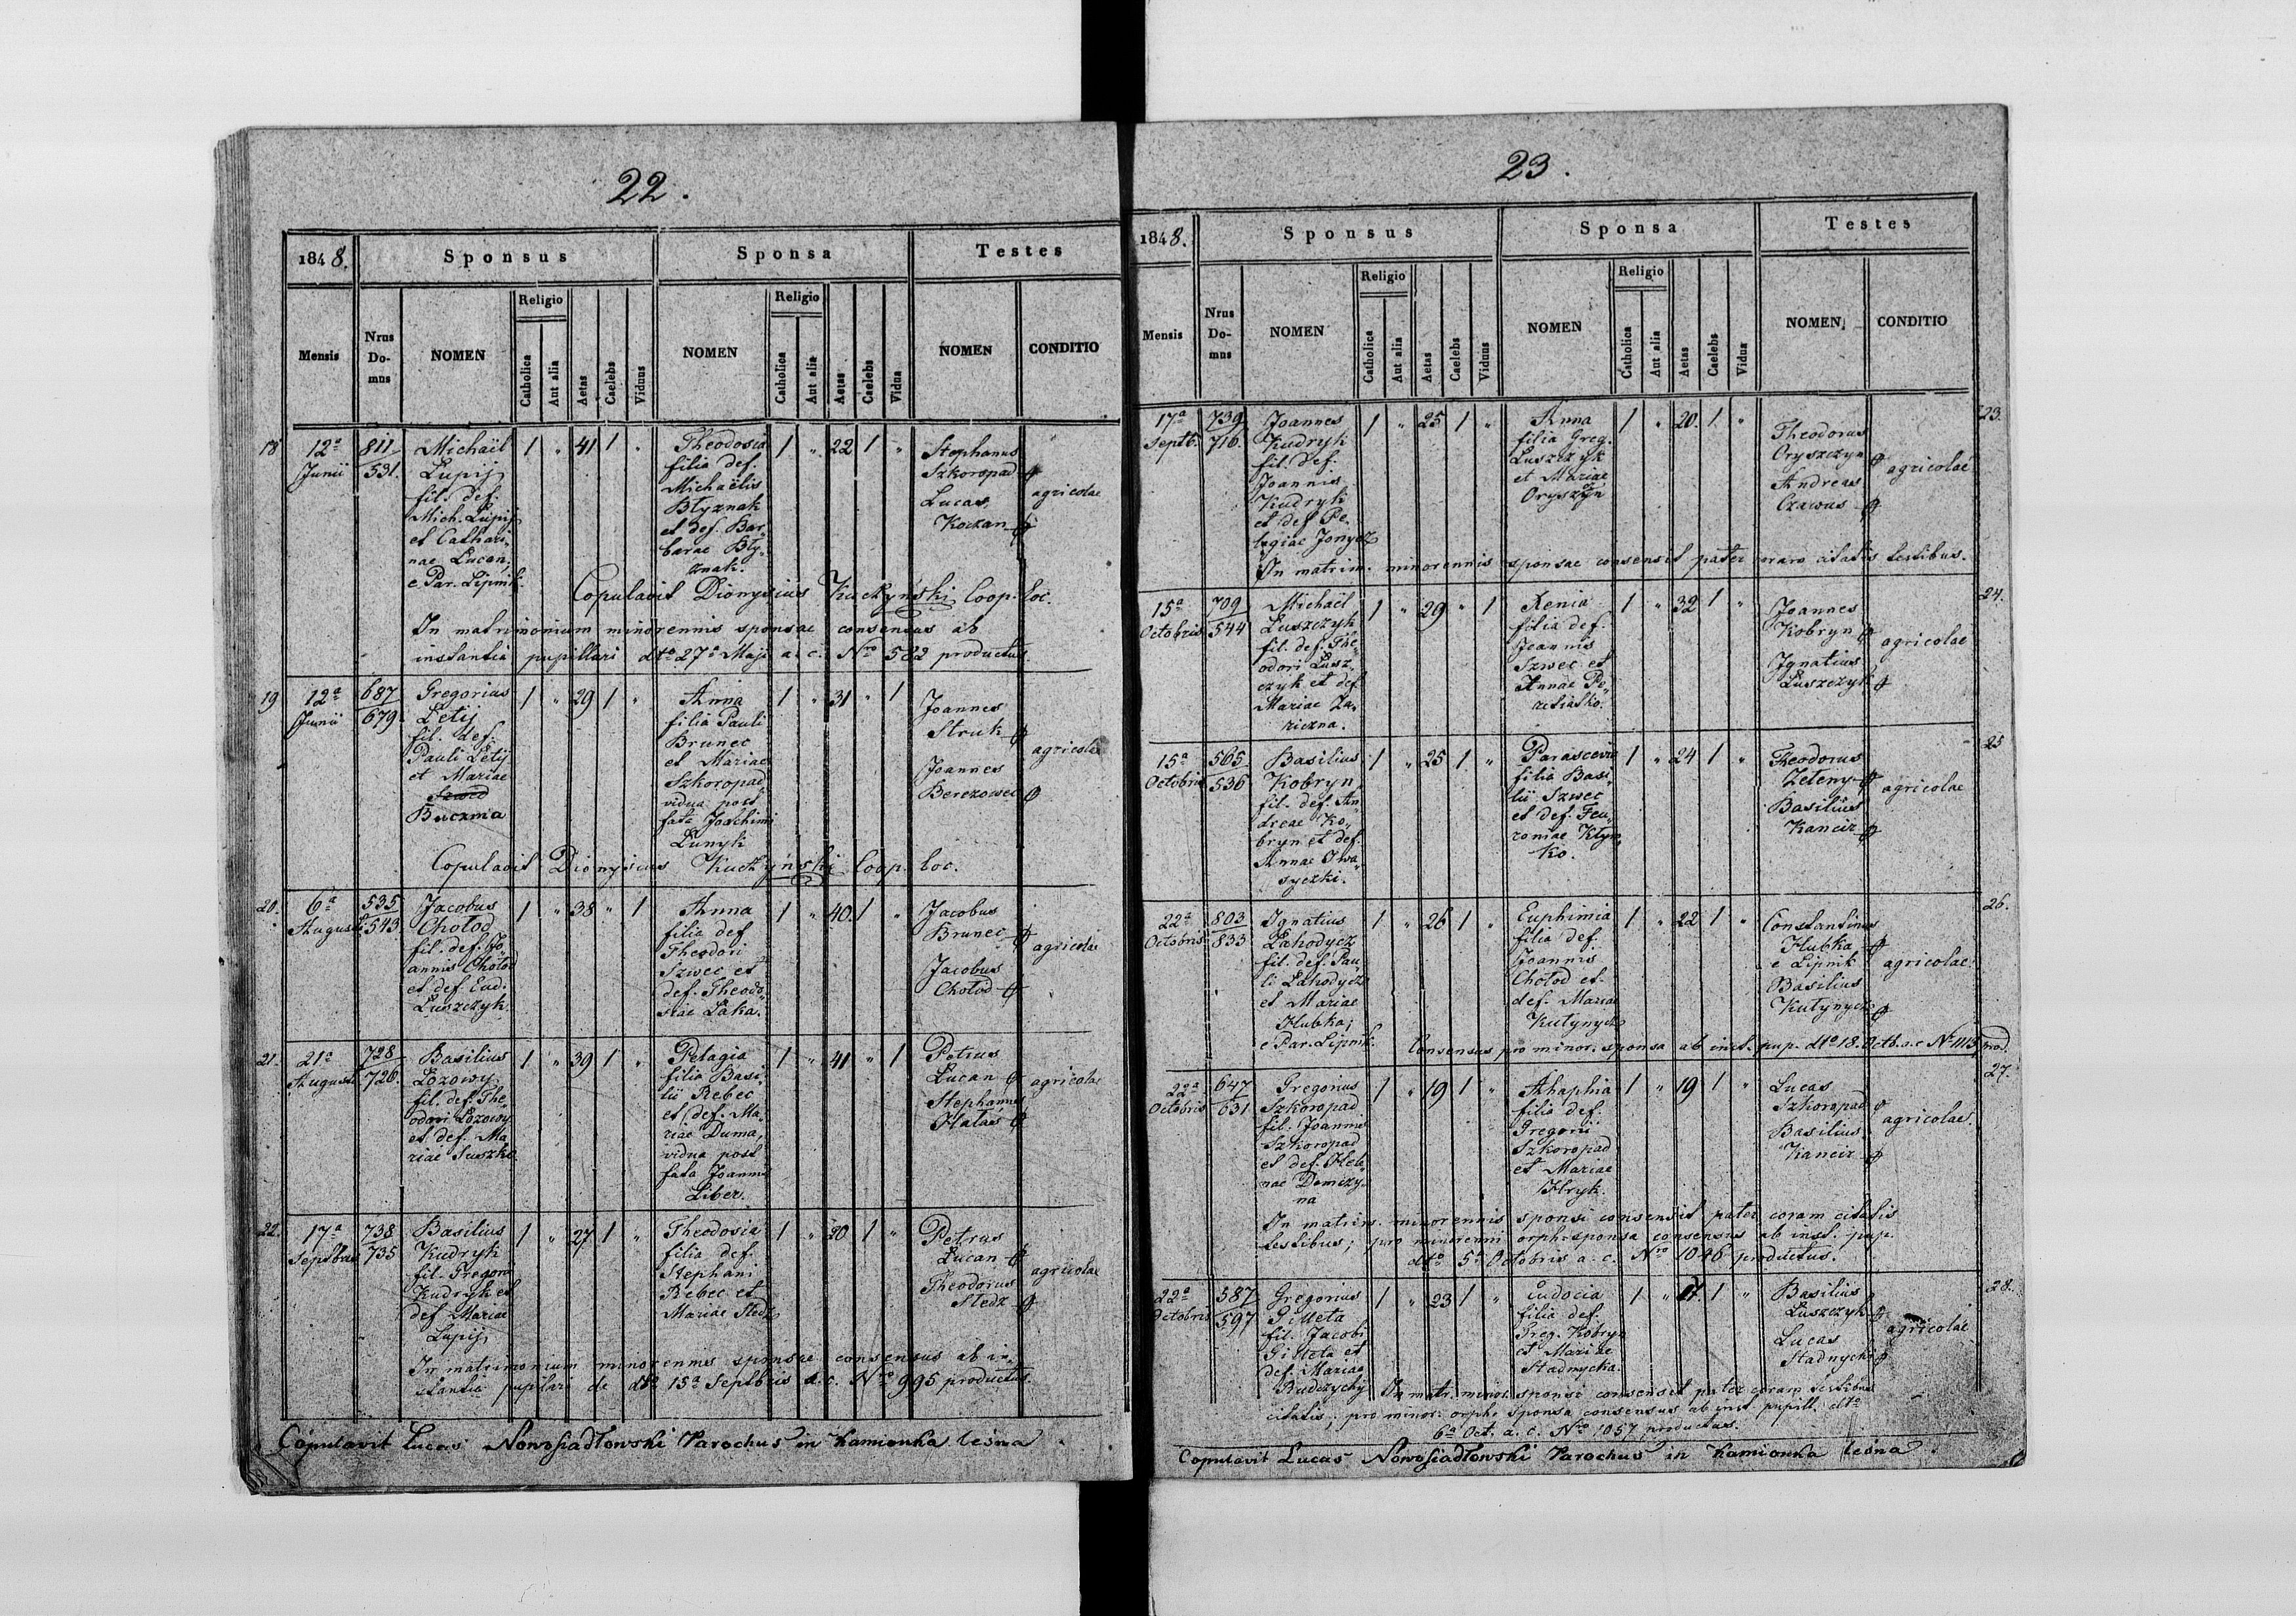 22.
1848.
Sponsus
Sponsa
Testes
Mensis
Nrus Do- mus
NOMEN
Religio
Catholica
Aut alia
Aetas
Caelebs
Viduus
NOMEN
Religio
Catholica
Aut alia
Aetas
Caelebs
Vidua
NOMEN
CONDITIO
18 12a Junii 811/531.
Michaël
Lupij
fil. def.
Mich. Lupij
et Cathari-
nae Lucan,
e Par. Lipnik.
1 " 41 1 "
Theodosia
filia def.
Michaëlis
Błyznak
et def. Bar-
barae Bły-
znak.
1 " 22 1 "
Stephanus
Szkoropad
Lucas
Koczan
agricolae
Copulavit Dionysius Kuczyński Coop. loc.
In matrimonium minorennis sponsae consensus ab
instantia pupillari dto 27a Maji a. c. Nro 582 productus.
19 12a Junii 687/679
Gregorius
Letij
fil. def.
Pauli Letij
et Mariae
Buczma
1 " 29 1 "
Anna
filia Pauli
Brunec
et Mariae
Szkoropad
vidua post
fata Joachimi
Lunyk
1 " 31 " 1
Joannes
Struk
Joannes
Berezowec
agricolae
Copulavit Dionysius Kuczyński Coop. loc.
20. 6a Augusti 535/543.
Jacobus
Chołod
fil. def. Jo-
annis Chołod
et def. Eud.
Luszczyk.
1 " 38 " 1
Anna
filia def
Theodori
Szwec et
def. Theodo-
siae Łaka.
1 " 40. 1 "
Jacobus
Brunec
Jacobus
Chołod
agricolae
21. 21a Augusti 728/726.
Basilius
Łozowy
fil. def. The-
odori Łozowy
et def. Ma-
riae Suszko
1 " 39 1 "
Pelagia
filia Basi-
lii Rebec
et def. Ma-
riae Duma,
vidua post
fata Joannis
Liber.
1 " 41 " 1
Petrus
Lucan
Stephanus
Hałas
agricolae
22. 17a Septbris 738/735
Basilius
Kudryk
fil. Gregorii
Kudryk et
def Mariae
Lupij
1 " 27 1 "
Theodosia
filia def.
Stephani
Rebec et
Mariae Sledz
1 " 20 1 "
Petrus
Lucan
Theodorus
Sledz
agricolae
In matrimonium minorennis sponsae consensus ab in-
stantia pupilari de dto 15a Septbris a. c. Nro 995 productus.
Copulavit Lucas Nowosiadłowski Parochus in Kamionka leśna
23.
1848.
Sponsus
Sponsa
Testes
Mensis
Nrus Do- mus
NOMEN
Religio
Catholica
Aut alia
Aetas
Caelebs
Viduus
NOMEN
Religio
Catholica
Aut alia
Aetas
Caelebs
Vidua
NOMEN
CONDITIO
17a Septb. 739/716.
Joannes
Kudryk
fil. def.
Joannis
Kudryk
et def Pe-
lagiae Jonycz
1 " 25 1 "
Anna
filia Greg.
Luszczyk
et Mariae
Oryszczyn
1 " 20. 1 "
Theodorus
Oryszczyn
Andreas
Czawus
agricolae
23.
In matrim. minorennis sponsae consensit pater coram citatis testibus.
15a Octobris 709/544
Michaël
Luszczyk
fil. def. The-
odori Lusz-
czyk et def
Mariae Za-
riczna.
1 " 29 " 1
Xenia
filia def.
Joannis
Szwec et
Annae
1 " 32 1 "
Joannes
Kobryn
Ignatius
Luszczyk
agricolae
24.
15a Octobris 565/536
Basilius
Kobryn
fil. def. An-
dreae Ko-
bryn et def.
Annae Iwa-
syczki.
1 " 25 1. "
Parascevia
filia Basi-
lii Szwec
et def. Feu-
roniae Kłym-
ko.
1 " 24 1 "
Theodorus
Zełeny
Basilius
Kancir
agricolae
25
22a Octobris 803/833
Ignatius
Łahodycz
fil. def. Pau-
li Łahodycz
et Mariae
Hubka;
e Par. Lipnik.
1 " 26 1 "
Euphimia
filia def.
Joannis
Chołod et
def. Mariae
Kułynycz
1 " 22 1 "
Constantinus
Hubka
e Lipnik
Basilius
Kułynycz
agricolae
26.
Consensus pro minor. sponsa ab inst. pup. dto 18. Octb. a. c. No 1113 prod.
22a Octobris 647/631
Gregorius
Szkoropad
fil. Joannis
Szkoropad
et def. Hele-
nae Demczy-
na
1 " 19 1 "
Ahaphia
filia def.
Gregorii
Szkoropad
et Mariae
Hryk.
1 " 19 1 "
Lucas
Szkoropad
Basilius
Kancir
agricolae.
27.
In matrim. minorennis sponsi consensit pater coram citatis
testibus; pro minorenni orph. sponsa consensus ab inst. pup.
dto 5a Octobris a. c. Nro 1046 productus.
22a Octobris 587/597
Gregorius
Gilleta
fil. Jacobi
Gilleta et
def. Mariae
Budczychij
1 " 23 1 "
Eudocia
filia def.
Greg. Kobryn
et Mariae
Stadnycka.
1 " 17. 1 "
Basilius
Luszczyk
Lucas
Stadnycki
agricolae
28.
In matr. minor. sponsi consensit pater coram testibus
citatis; pro minor. orph. sponsa consensus ab inst. pupill. dto
6a Oct. a. c. Nro 1057 productus.
Copulavit Lucas Nowosiadłowski Parochus in Kamionka leśna.